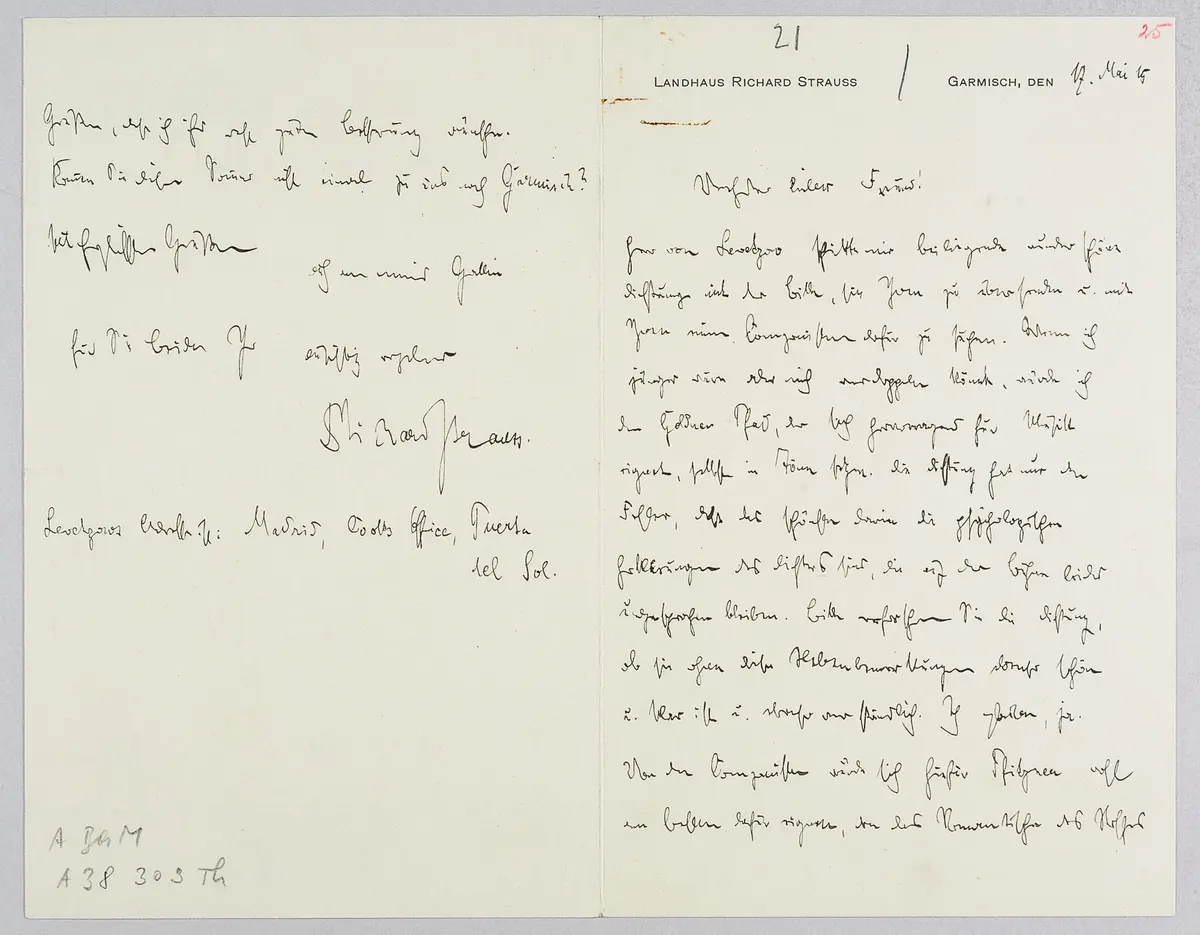 21
25
LANDHAUS RICHARD STRAUSS
GARMISCH, DEN 17. Mai 15
Verehrter lieber Freund!
Herr von Levetzow schickte mir beiliegende wunderschöne
Dichtung mit der Bitte, sie Ihnen zu übersenden u. mit
Ihnen einen Componisten dafür zu suchen. Wenn ich
jünger wäre oder mich verdoppeln könnte, würde ich
den Goldnen Pfad, der sich hervorragend für Musik
eignet, selbst in Töne setzen. Die Dichtung hat nur den
Fehler, daß das schönste darin die psychologischen
Erklärungen des Dichters sind, die auf der Bühne leider
ungesprochen bleiben. Bitte erforschen Sie die Dichtung,
ob sie ohne diese Nebenbemerkungen ebenso schön
u. klar ist u. ebenso verständlich. Ich glaube, ja.
Von den Componisten würde sich hiefür Pfitzner wohl
am besten dafür eignen, der das Romantische des Stoffes
Grüßen, daß ich ihr recht gute Besserung wünsche.
Kommen Sie diesen Sommer nicht einmal zu uns nach Garmisch?
Mit herzlichsten Grüßen
auch von meiner Gattin
für Sie beide Ihr
aufrichtig ergebener
Dr. Richard Strauss.
Levetzows Adresse ist: Madrid, Cooks Office, Puerta
del Sol.
A 38 303 Th